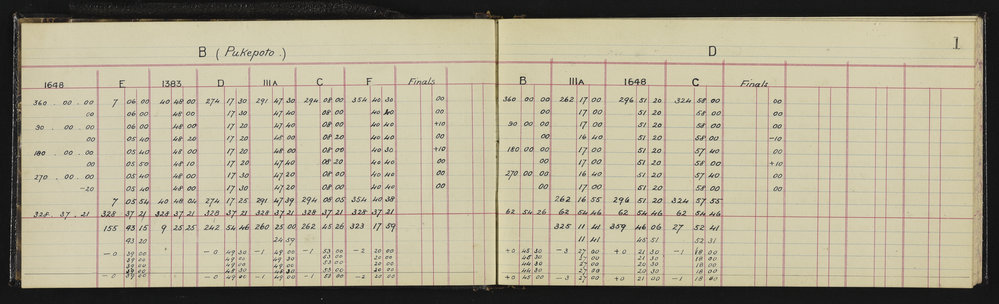 B (Pukepoto.)
1648 E 1383 D IIIA C F Finals
360 . 00 . 00 7 06 00 40 48 00 274 17 30 291 47 30 294 08 00 354 40 30 00
00 06 00 48 00 17 30 47 40 08 00 40 40 00
90 . 00 . 00 06 00 48 00 17 20 47 40 08 00 40 40 +10
00 05 40 48 20 17 20 48 00 08 20 40 40 00
180 . 00 . 00 05 40 48 00 17 20 48 00 08 00 40 30 +10
00 05 50 48 10 17 20 47 40 08 20 40 40 00
270 . 00 . 00 05 40 48 00 17 30 47 20 08 00 40 40 00
-20 05 40 48 00 17 20 47 20 08 00 40 40 00
7 05 54 40 48 04 274 17 25 291 47 39 294 08 05 354 40 38
328 . 37 . 21 328 37 21 328 37 21 328 37 21 328 37 21 328 37 21 328 37 21
155 43 15 9 25 25 242 54 46 260 25 00 262 45 26 323 17 59
43 20 24 59
-0 39 00 -0 49 30 -1 49 00 -1 53 00 -2 20 00
39 00 49 00 49 30 53 00 20 00
39 00 49 00 49 00 53 00 20 00
39 00 48 30 48 30 20 00
-0 39 00 -0 49 00 -1 49 00 -1 53 00 -2 20 00
1
D
B IIIA 1648 C Finals
360 00 00 262 17 00 296 51 20 324 58 00 00
00 17 00 51 20 58 00 00
90 00 00 17 00 51 20 58 00 00
00 16 40 51 20 58 00 -10
180 00 00 17 00 51 20 57 40 00
00 17 00 51 20 58 00 +10
270 00 00 16 40 51 20 57 40 00
00 17 00 51 20 58 00 00
262 16 55 296 51 20 324 57 55
62 54 26 62 54 46 62 54 46 62 54 46
325 11 41 359 46 06 27 52 41
11 41 45 51 52 31
+0 45 30 -3 27 00 +0 21 30 -1 18 00
45 30 27 00 21 30 18 00
44 30 27 00 20 30 18 00
44 30 27 00 20 30 18 00
+0 45 00 -3 27 00 +0 21 00 -1 18 00